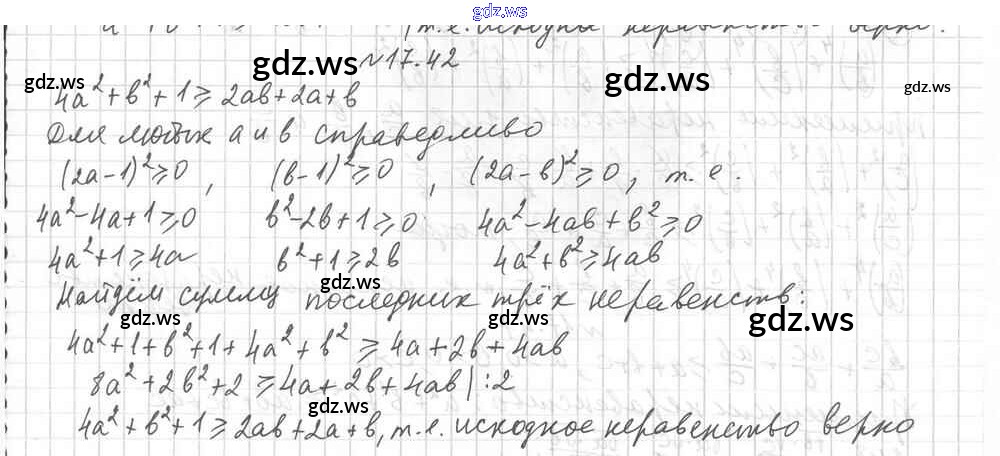 gdz.ws
(т.е. исходные неравенство верно.
№17.42
gdz.ws
gdz.ws
gdz.ws
gdz.ws
4a²+b²+1⩾2ab+2a+b
Для любых a и b справедливо
(2a-1)²⩾0, (b-1)²⩾0, (2a-b)²⩾0, т.е.
4a²-4a+1⩾0 b²-2b+1⩾0 4a²-4ab+b²⩾0
4a²+1⩾4a b²+1⩾2b 4a²+b²⩾4ab
gdz.ws
Найдём сумму последних трёх неравенств:
gdz.ws
gdz.ws
gdz.ws
4a²+1+b²+1+4a²+b²⩾4a+2b+4ab
8a²+2b²+2⩾4a+2b+4ab|:2
gdz.ws
4a²+b²+1⩾2ab+2a+b, т.е. исходное неравенство верно